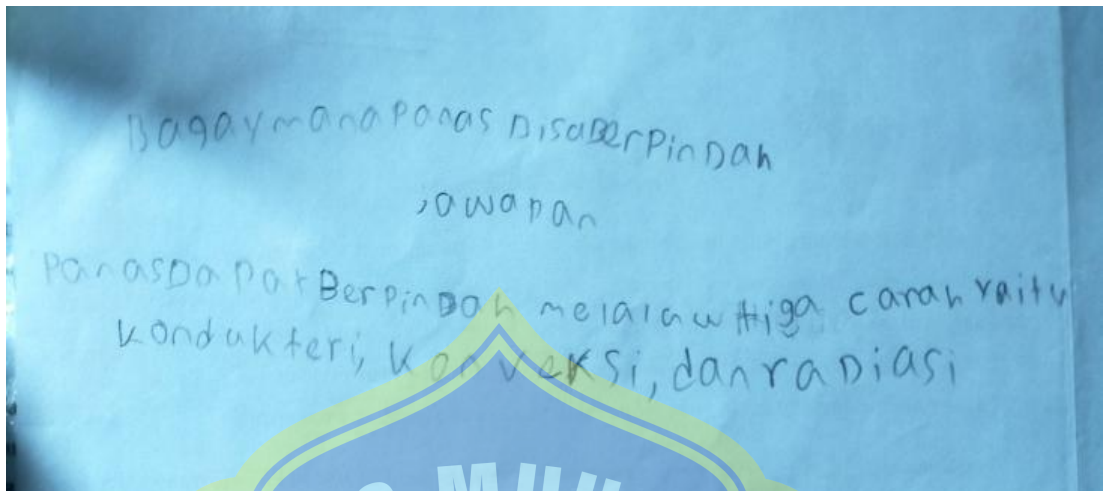 Bagaymana Panas DisaBerPinDah
jawaban
PanasDaPatBerPinDah melalaw tiga carah yaitu
kondukteri, konveksi, dan raDiasi